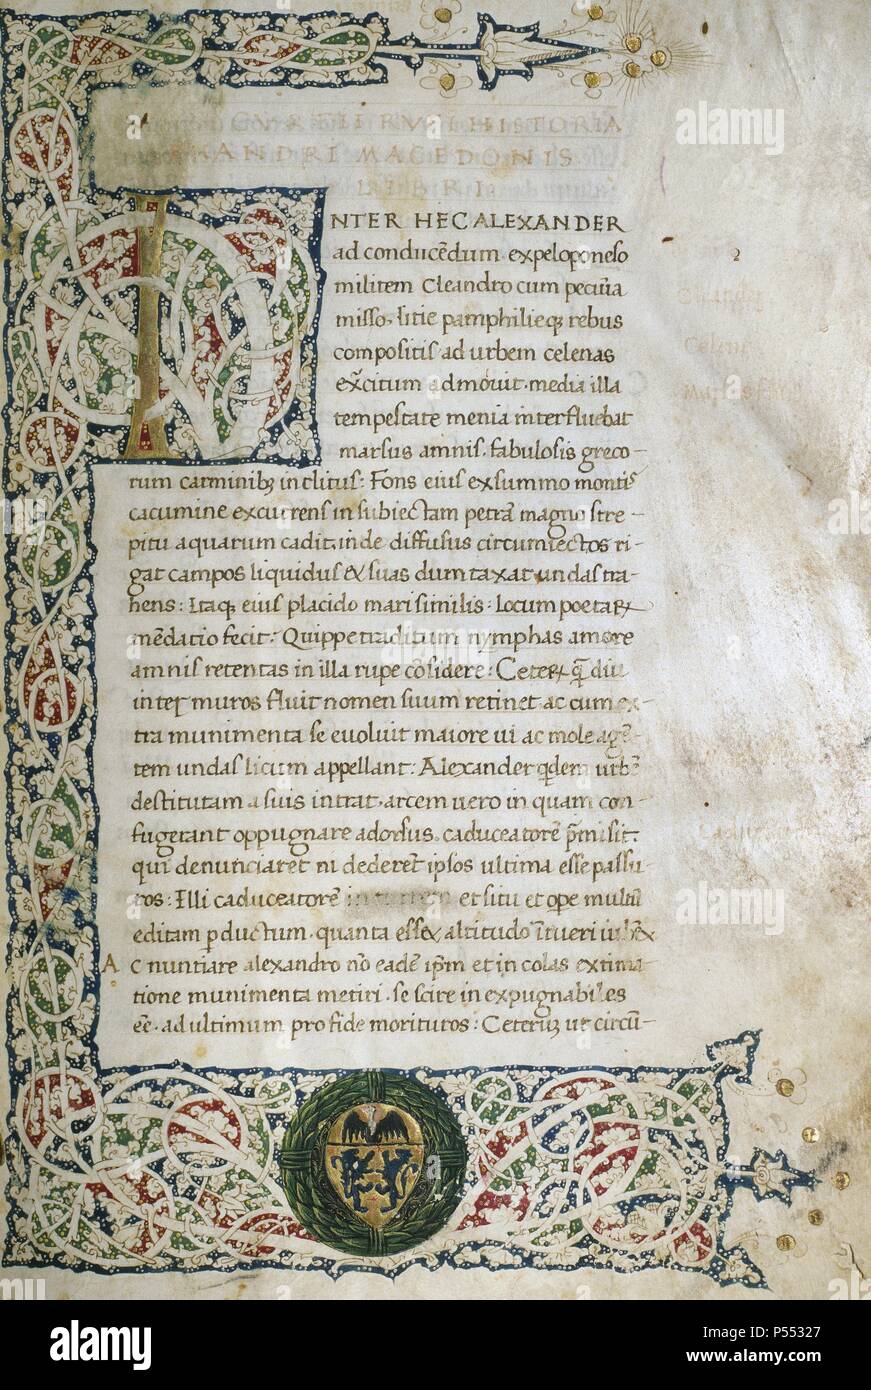 CVRTII RVFI HISTORIA
ANDRI MACEDONIS
LIBRI
INTER HEC ALEXANDER
ad conducēdum expeloponeso
militem Cleandro cum pecūia
misso. litie pamphilieq; rebus
compositis ad urbem celenas
exercitum admouit. media illa
tempestate menia interfluebat
marsus amnis. fabulosis greco-
rum carminibꝫ inclitus: Fons eius exsummo montis
cacumine excurrens in subiectam petrā magno stre-
pitu aquarum cadit, inde diffusus circumiectos ri-
gat campos liquidus & suas dumtaxat undas tra-
hens: Itaq; eius placido mari similis. Locum poetaꝝ
mēdatio fecit: Quippe traditum nymphas amore
amnis retentas in illa rupe cōsidere: Ceteꝝ q̄ diu
inter muros fluit nomen suum retinet ac cum ex-
tra munimenta se euoluit maiore ui ac mole agē-
tem undas licum appellant: Alexander qdem urbē
destitutam a suis intrat. arcem uero in quam con-
fugerant oppugnare adorsus. caduceatorē p̄misit.
qui denunciaret ni dederēt ipsos ultima esse passu-
ros: Illi caduceatorē et situ et ope multū
editam ꝑductum. quanta esset altitudo ītueri iubēt
Ac nuntiare alexandro nō eadē ip̄m et incolas extima-
tione munimenta metiri. se scire inexpugnabiles
eē. ad ultimum pro fide morituros: Ceterꝫ ut circū-
2
alamy
alamy
alamy
alamy
Image ID: P55327
www.alamy.com